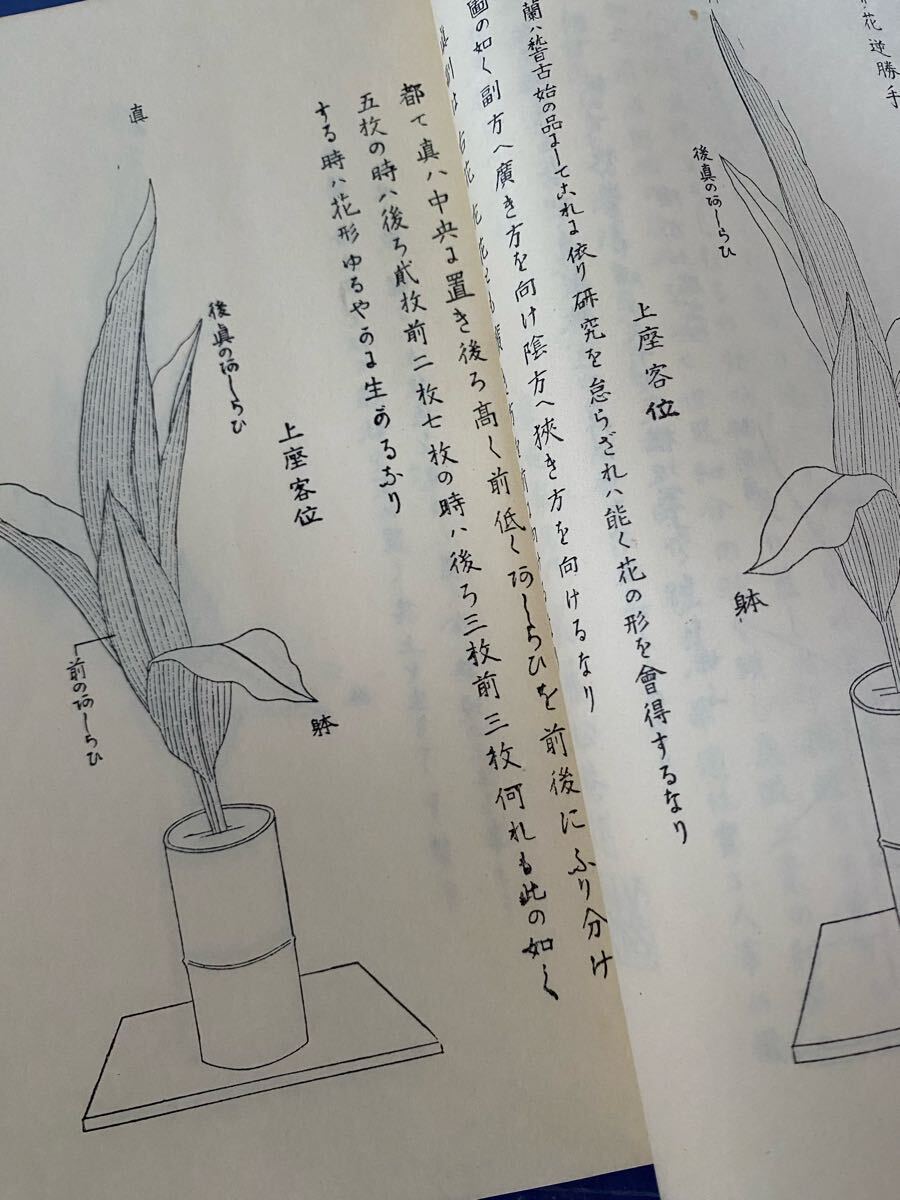 花逆勝手
後真のあしらひ
上座客位
躰
蘭ハ稽古始の品にしてこれに依り研究を怠らざれハ能く花の形を會得するなり
圖の如く副方へ廣き方を向け陰方へ狹き方を向けるなり
都て真ハ中央に置き後ろ高く前低くあしらひを前後にふり分け
五枚の時ハ後ろ貳枚前二枚七枚の時ハ後ろ三枚前三枚何れも此の如く
する時ハ花形ゆるやかに生かるなり
上座客位
真
後真のあしらひ
前のあしらひ
躰